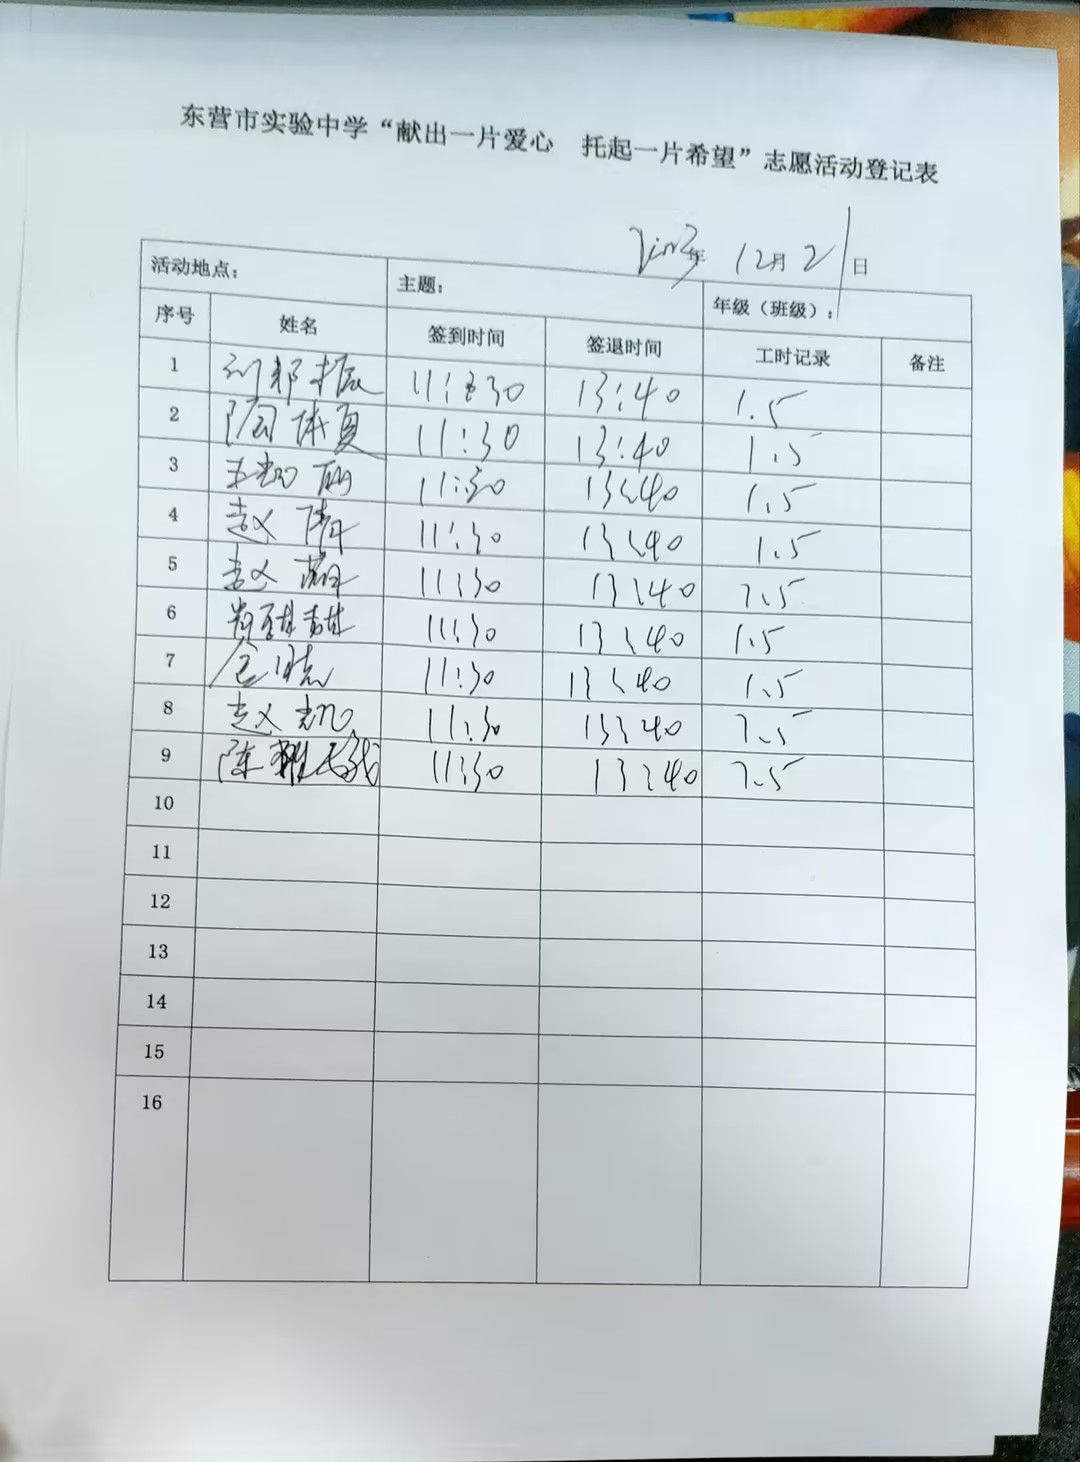 东营市实验中学“献出一片爱心 托起一片希望”志愿活动登记表
年 12月21日
活动地点： 主题： 年级（班级）：
序号 姓名 签到时间 签退时间 工时记录 备注
1 11:30 13:40 1.5
2 11:30 13:40 1.5
3 11:30 13:40 1.5
4 赵 11:30 13:40 1.5
5 赵 11:30 13:40 1.5
6 11:30 13:40 1.5
7 11:30 13:40 1.5
8 赵 11:30 13:40 1.5
9 陈 11:30 13:40 1.5
10
11
12
13
14
15
16